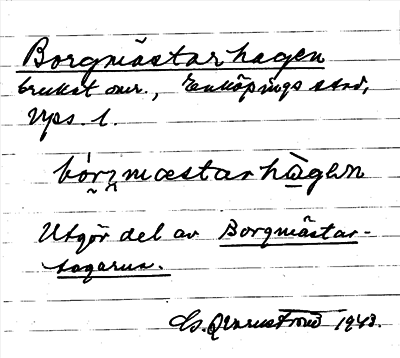 Borgmästarhagen
brukat omr., Enköpings stad,
Ups. l.
bórŋmæstarhàgen
Utgör del av Borgmästar-
hagarna.
1943.